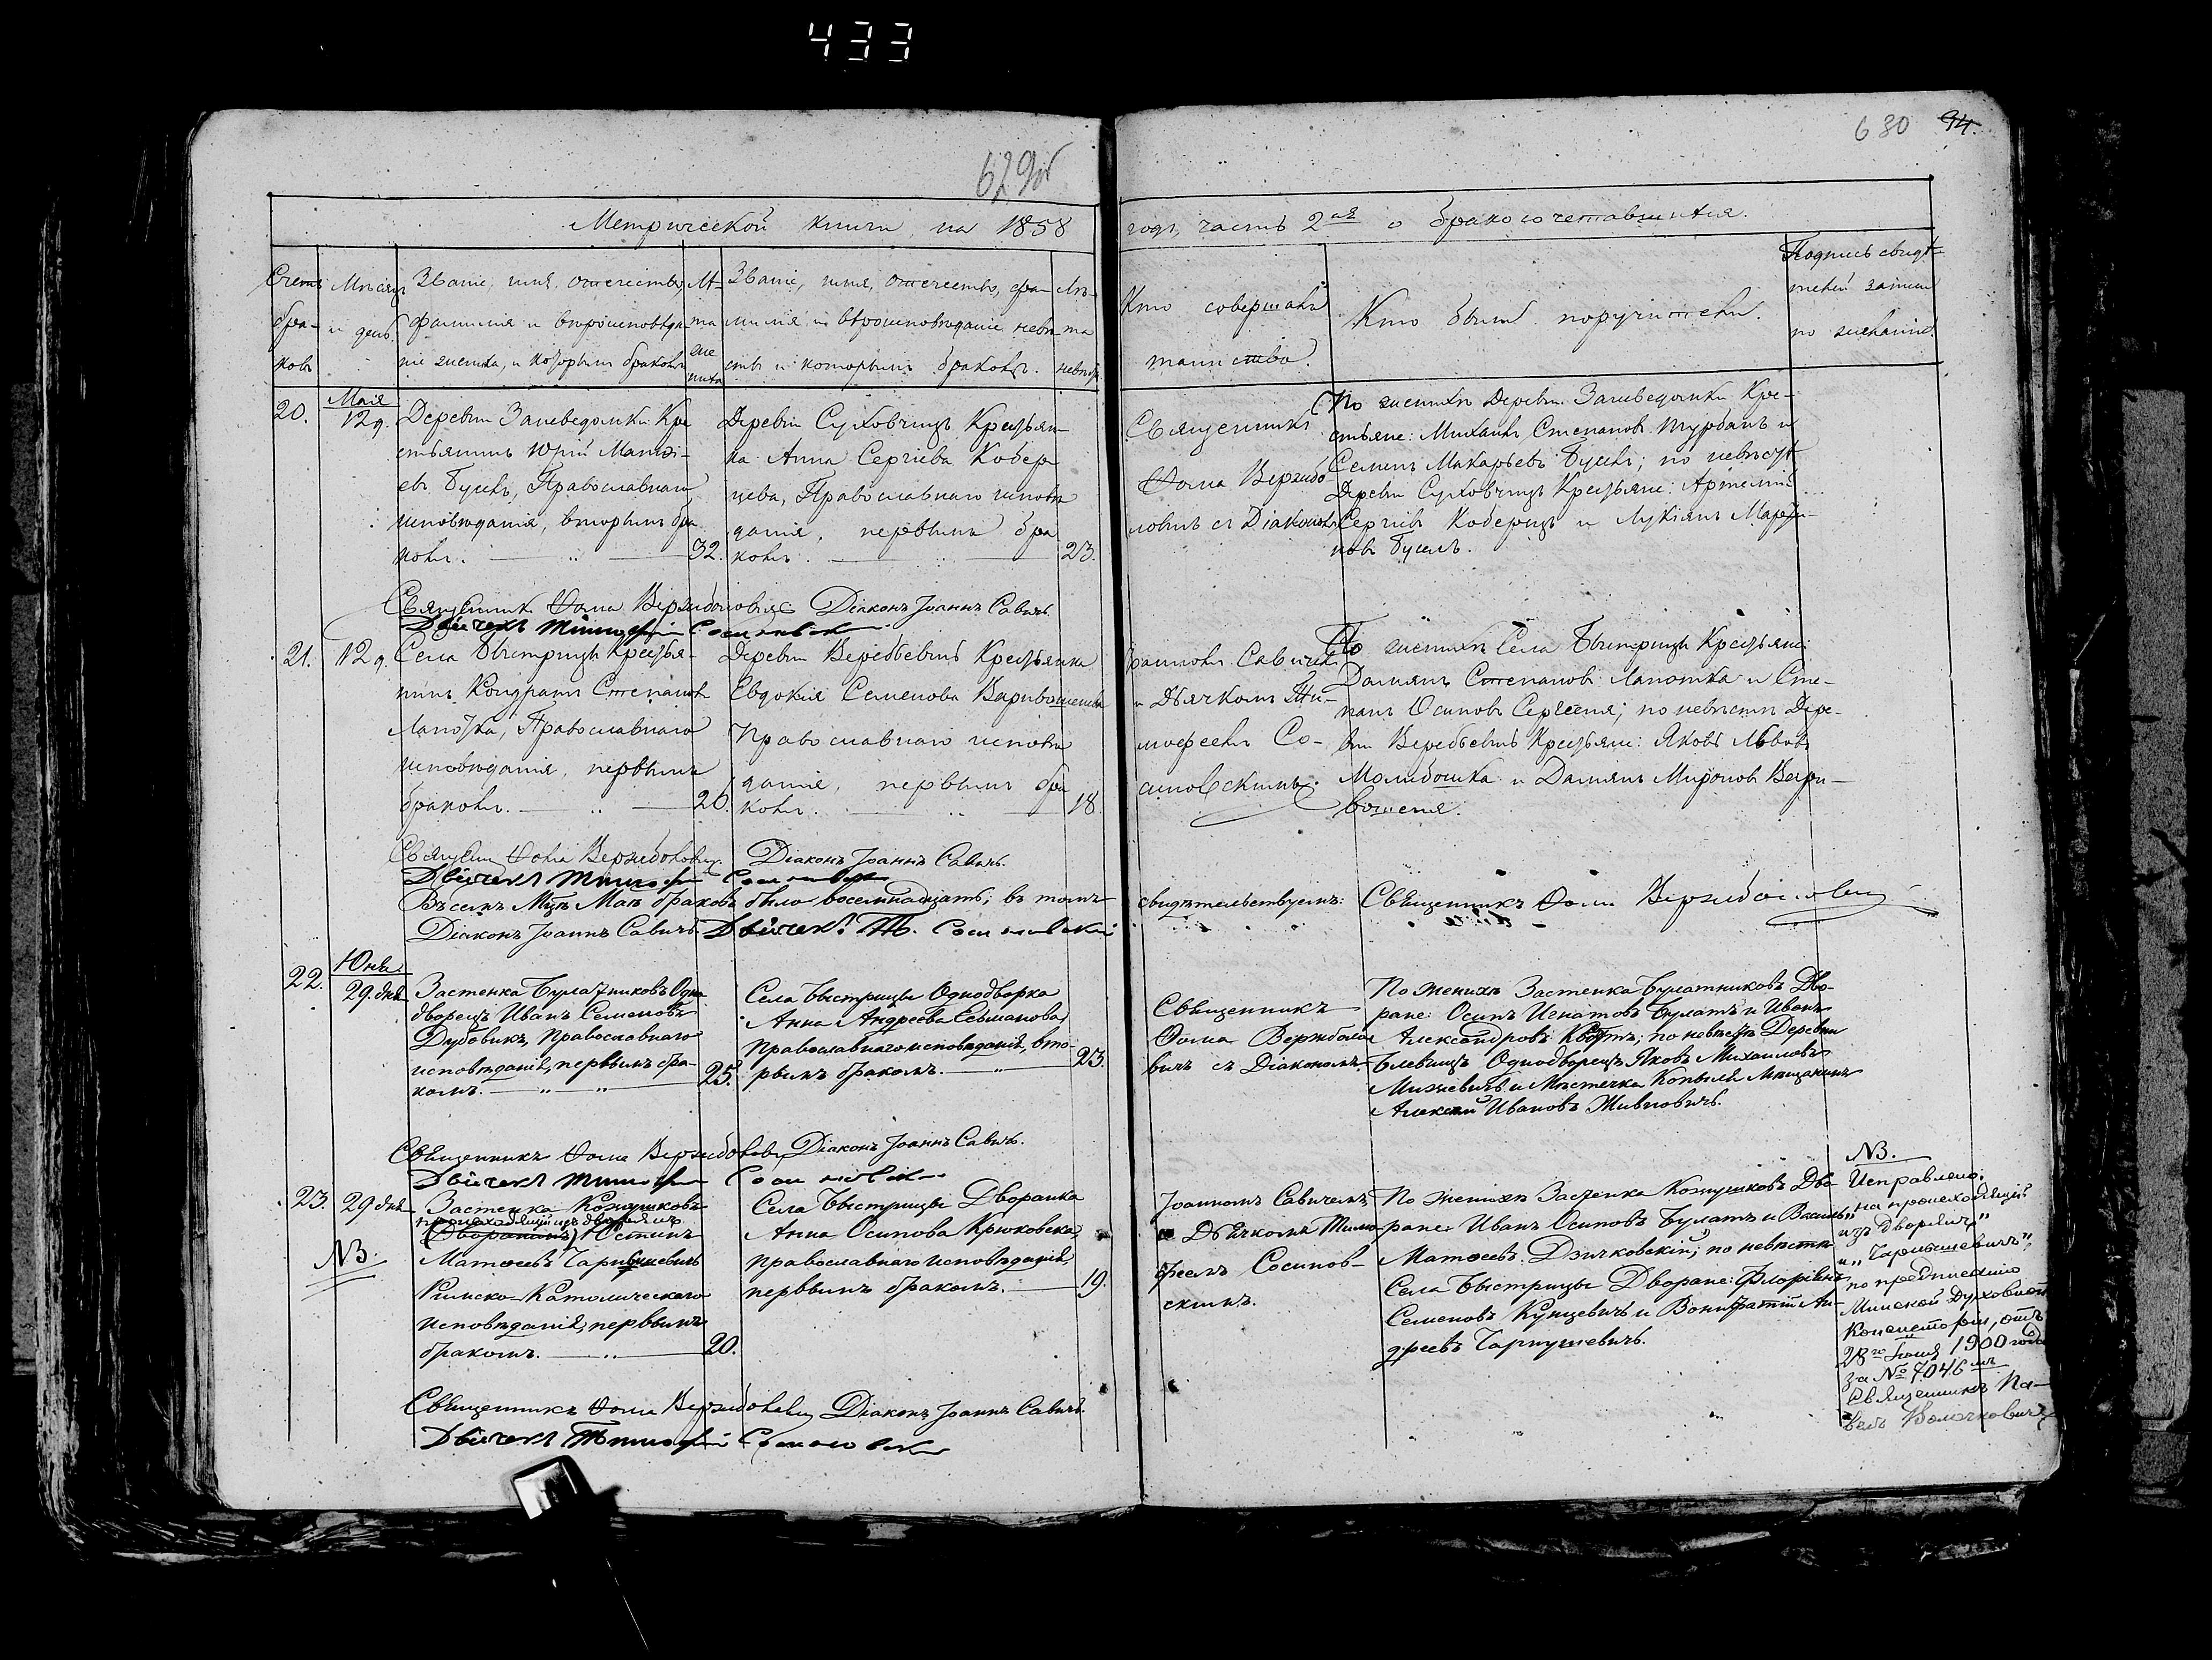 433
629об
630 94.
Метрической книги, на 1858
годъ, часть 2ая о бракосочетавшихся.
Счетъ браковъ
Мѣсяцъ и день.
Званіе, имя, отечество, фамилія и вѣроисповѣданіе жениха, и которымъ бракомъ
Лѣта жениха
Званіе, имя, отечество, фамилія и вѣроисповѣданіе невѣсты и которымъ бракомъ.
Лѣта невѣсты
Кто совершалъ таинство.
Кто были поручители.
Подпись свидѣтелей записи по желанію.
20.
Мая
12 д.
Деревни Заневедомки Кре
стьянинъ Юрій Матѳі-
евъ Бусель, Православнаго
исповѣданія, вторымъ бра
комъ. 32.
Деревни Суховчицъ Крестьян-
ка Анна Сергіева Кобер
цева, Православнаго исповѣ
данія, первымъ бра
комъ. 23.
Священникъ
Ѳома Вержбо
ловичъ съ Діакономъ
По женихѣ Деревни Заневедомки Кре-
стьяне: Михаилъ Степановъ Турбанъ и
Семенъ Макарьевъ Бусель; по невѣстѣ
Деревни Суховчицъ Крестьяне: Артемій
Сергіевъ Коберецъ и Лукіянъ
новъ Бусель.
Священникъ Ѳома Вержболовичъ Діаконъ Іоаннъ Савичъ.
Дьячекъ Тимофей Сосиновскій
21. 12 д.
Села Быстрицы Крестья-
нинъ Кондратъ Степановъ
Лапотка, Православнаго
исповѣданія, первымъ
бракомъ. 20.
Деревни Веребьевичъ Крестьянка
Евдокія Семенова Каривошенева
Православнаго исповѣ
данія, первымъ бра
комъ. 18.
Іоанномъ Савичемъ
и Дьячкомъ Ти-
мофеемъ Со-
синовскимъ.
По женихѣ Села Быстрицы Крестьяне:
Даміянъ Степановъ Лапотка и Сте-
панъ Осиповъ Сергееня; по невѣстѣ Дере-
вни Веребьевичъ Крестьяне: Яковъ Львовъ
Молибошка и Даміянъ Мироновъ Вари-
вошеня.
Священникъ Ѳома Вержболовичъ. Діаконъ Іоаннъ Савичъ.
Дьячекъ Тимофей Сосиновскій
Въ семъ Мцѣ Маѣ браковъ было восемнадцать; въ томъ
свидѣтельствуемъ: Священникъ Ѳома Вержболовичъ
Діаконъ Іоаннъ Савичъ Дьячекъ Т. Сосиновскій
22.
Юня
29. дня
Застенка Булатниковъ Одно
дворецъ Иванъ Семеновъ
Дубовикъ, Православнаго
исповѣданія, первымъ бра-
комъ. 25.
Села Быстрицы Однодворка
Анна Андреева
Православнаго исповѣданія, вто-
рымъ бракомъ. 23.
Священникъ
Ѳома Вержболо
вичъ съ Діакономъ
По женихѣ Застенка Булатниковъ Дво-
ране: Осипъ Игнатовъ Булатъ и Иванъ
Александровъ; по невѣстѣ Деревни
Блевчицъ Однодворецъ Яковъ Михаиловъ
и Мѣстечка Копыля Мѣщанинъ
Алексѣй Ивановъ Живновичъ.
Священникъ Ѳома Вержболовичъ Діаконъ Іоаннъ Савичъ.
Дьячекъ Тимофей Сосиновскій
23. 29 дня
NB.
Застенка Кожушковъ
происходящій изъ дворянъ
(Дворанинъ) Юстинъ
Матѳеевъ Чарнышевичъ
Римско-Католическаго
исповѣданія, первымъ
бракомъ. 20.
Села Быстрицы Дворанка
Анна Осипова Крюковска,
православнаго исповѣданія,
первымъ бракомъ. 19.
Іоанномъ Савичемъ,
и Дьячкомъ Тимо
феемъ Сосинов-
скимъ.
По женихѣ Застенка Кожушковъ Дво
ране: Иванъ Осиповъ Булатъ и Василь
Матѳеевъ Дзичковскій; по невѣсты
Села Быстрицы Дворане: Флоріянъ
Семеновъ Кунцевичъ и Вонифатій Ан-
дреевъ Чарнушевичъ.
NB.
Исправлено:
„на происходящій
изъ дворянъ"
и „Чарнышевичъ",
по предписанію
Минской Духовной
Консисторіи, отъ
28го Іюня 1900 года
за № 7046мъ
Священникъ Па-
велъ Волочковичъ
Священникъ Ѳома Вержболовичъ Діаконъ Іоаннъ Савичъ.
Дьячекъ Тимофей Сосиновскій